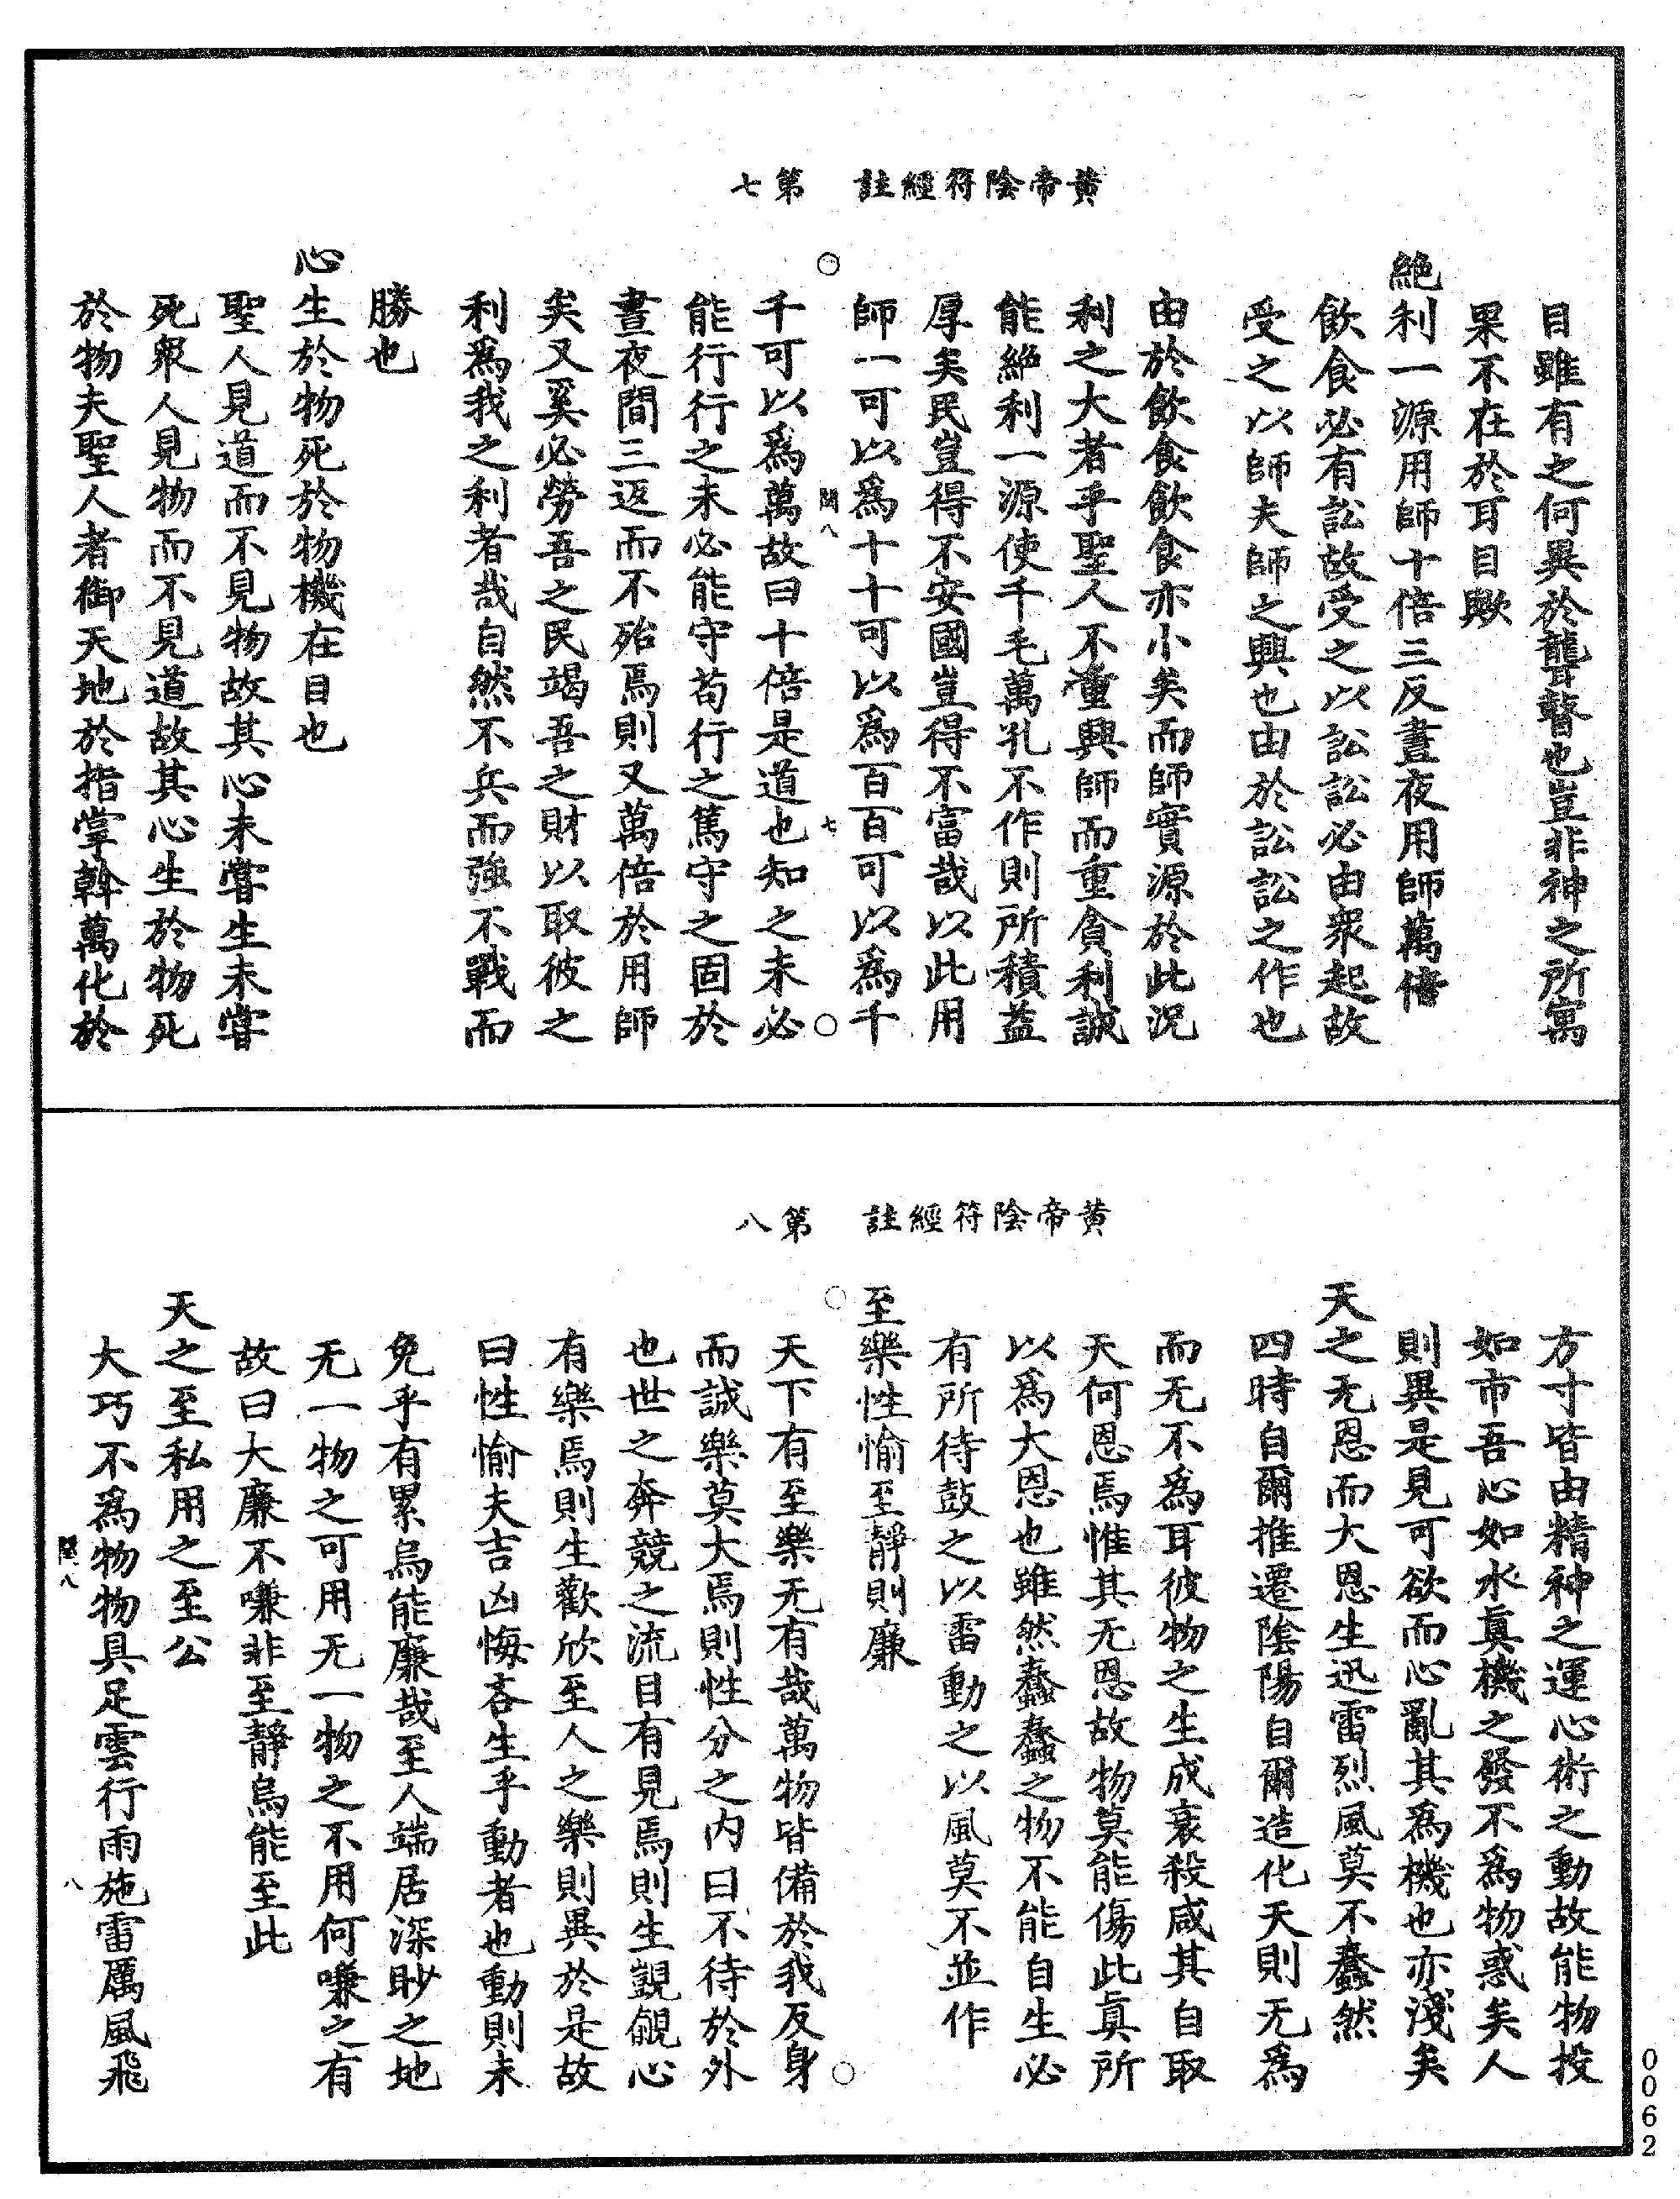 黃帝陰符經註　第七
目雖有之何異於聾瞽也豈非神之所寓
果不在於耳目歟
絕利一源用師十倍三反晝夜用師萬倍
飲食必有訟故受之以訟訟必由衆起故
受之以師夫師之興也由於訟訟之作也
由於飲食飲食亦小矣而師實源於此況
利之大者乎聖人不重興師而重貪利誠
能絕利一源使千毛萬孔不作則所積益
厚矣民豈得不安國豈得不富哉以此用
師一可以爲十十可以爲百百可以爲千
閏八　七
千可以爲萬故曰十倍是道也知之未必
能行行之未必能守苟行之篤守之固於
晝夜間三返而不殆焉則又萬倍於用師
矣又奚必勞吾之民竭吾之財以取彼之
利爲我之利者哉自然不兵而強不戰而
勝也
心生於物死於物機在目也
聖人見道而不見物故其心未嘗生未嘗
死衆人見物而不見道故其心生於物死
於物夫聖人者御天地於指掌斡萬化於
黃帝陰符經註　第八
方寸皆由精神之運心術之動故能物投
如市吾心如水眞機之發不爲物惑矣人
則異是見可欲而心亂其爲機也亦淺矣
天之无恩而大恩生迅雷烈風莫不蠢然
四時自爾推遷陰陽自爾造化天則无爲
而无不爲耳彼物之生成衰殺咸其自取
天何恩焉惟其无恩故物莫能傷此眞所
以爲大恩也雖然蠢蠢之物不能自生必
有所待鼓之以雷動之以風莫不並作
至樂性愉至靜則廉
天下有至樂无有哉萬物皆備於我反身
而誠樂莫大焉則性分之內曰不待於外
也世之奔競之流目有見焉則生覬覦心
有樂焉則生歡欣至人之樂則異於是故
曰性愉夫吉凶悔吝生乎動者也動則未
免乎有累烏能廉哉至人端居深眇之地
无一物之可用无一物之不用何嗛之有
故曰大廉不嗛非至靜烏能至此
天之至私用之至公
大巧不爲物物具足雲行雨施雷厲風飛
閏八　八
0062